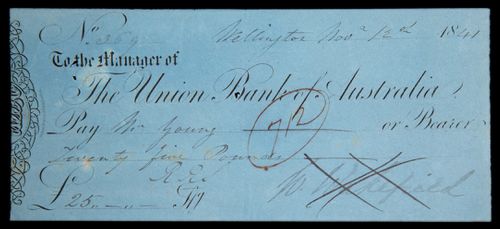 No.
Wellington Novr 12th 1841
To the Manager of
The Union Bank of Australia
Pay Mr Young or Bearer
Twenty five Pounds
£25
W. Wakefield